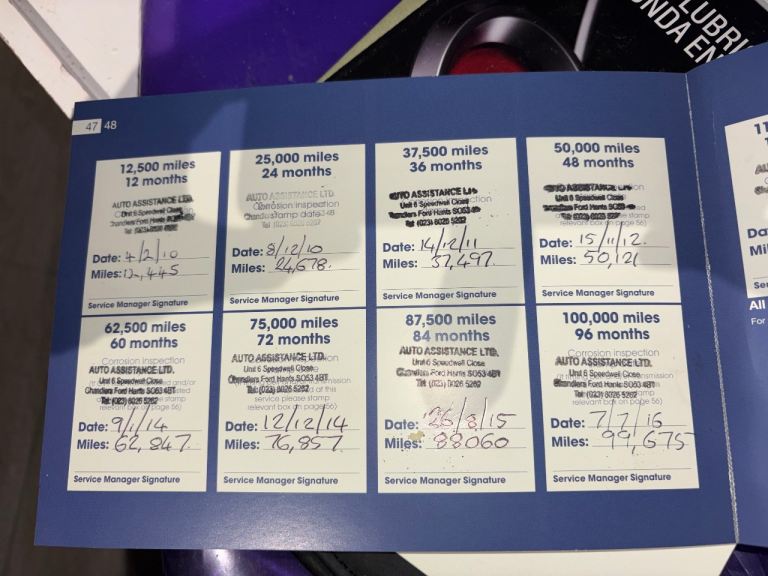 LUBRI
NDA EN
47 48
12,500 miles
12 months
AUTO ASSISTANCE LTD.
Unit 6 Speedwell Close
Chandlers Ford Hants
Date: 4/2/10
Miles: 12,445
Service Manager Signature
25,000 miles
24 months
AUTO ASSISTANCE LTD.
Corrosion Inspection
stamp
Date: 8/12/10
Miles: 24,678.
Service Manager Signature
37,500 miles
36 months
AUTO ASSISTANCE
Unit 6 Speedwell Close
Chandlers Ford Hants SO53
Tel: (023) 8026 5262
Date: 14/12/11
Miles: 37,497.
Service Manager Signature
50,000 miles
48 months
Unit 6 Speedwell Close
Ford Hants SO53
stamp
page 56)
Date: 15/11/12.
Miles: 50,121
Service Manager Signature
62,500 miles
60 months
Corrosion Inspection
AUTO ASSISTANCE LTD.
Unit 6 Speedwell Close
Chandlers Ford Hants SO53 4BT
Tel: (023) 8026 5262
relevant box on page 56)
Date: 9/1/14
Miles: 62,847
Service Manager Signature
75,000 miles
72 months
AUTO ASSISTANCE LTD.
Unit 6 Speedwell Close
Chandlers Ford Hants SO53 4BT
Tel: (023) 8026 5262
service please stamp
relevant box on page 56)
Date: 12/12/14
Miles: 76,857
Service Manager Signature
87,500 miles
84 months
AUTO ASSISTANCE LTD.
Unit 6 Speedwell Close
Chandlers Ford Hants SO53 4BT
Tel: (023) 8026 5262
Date: 26/8/15
Miles: 88060
Service Manager Signature
100,000 miles
96 months
Corrosion Inspection
AUTO ASSISTANCE LTD.
Unit 6 Speedwell Close
Chandlers Ford Hants SO53 4BT
Tel: (023) 8026 5262
relevant box on page 56)
Date: 7/7/16
Miles: 99,675
Service Manager Signature
11
Da
Mil
Se
All
For